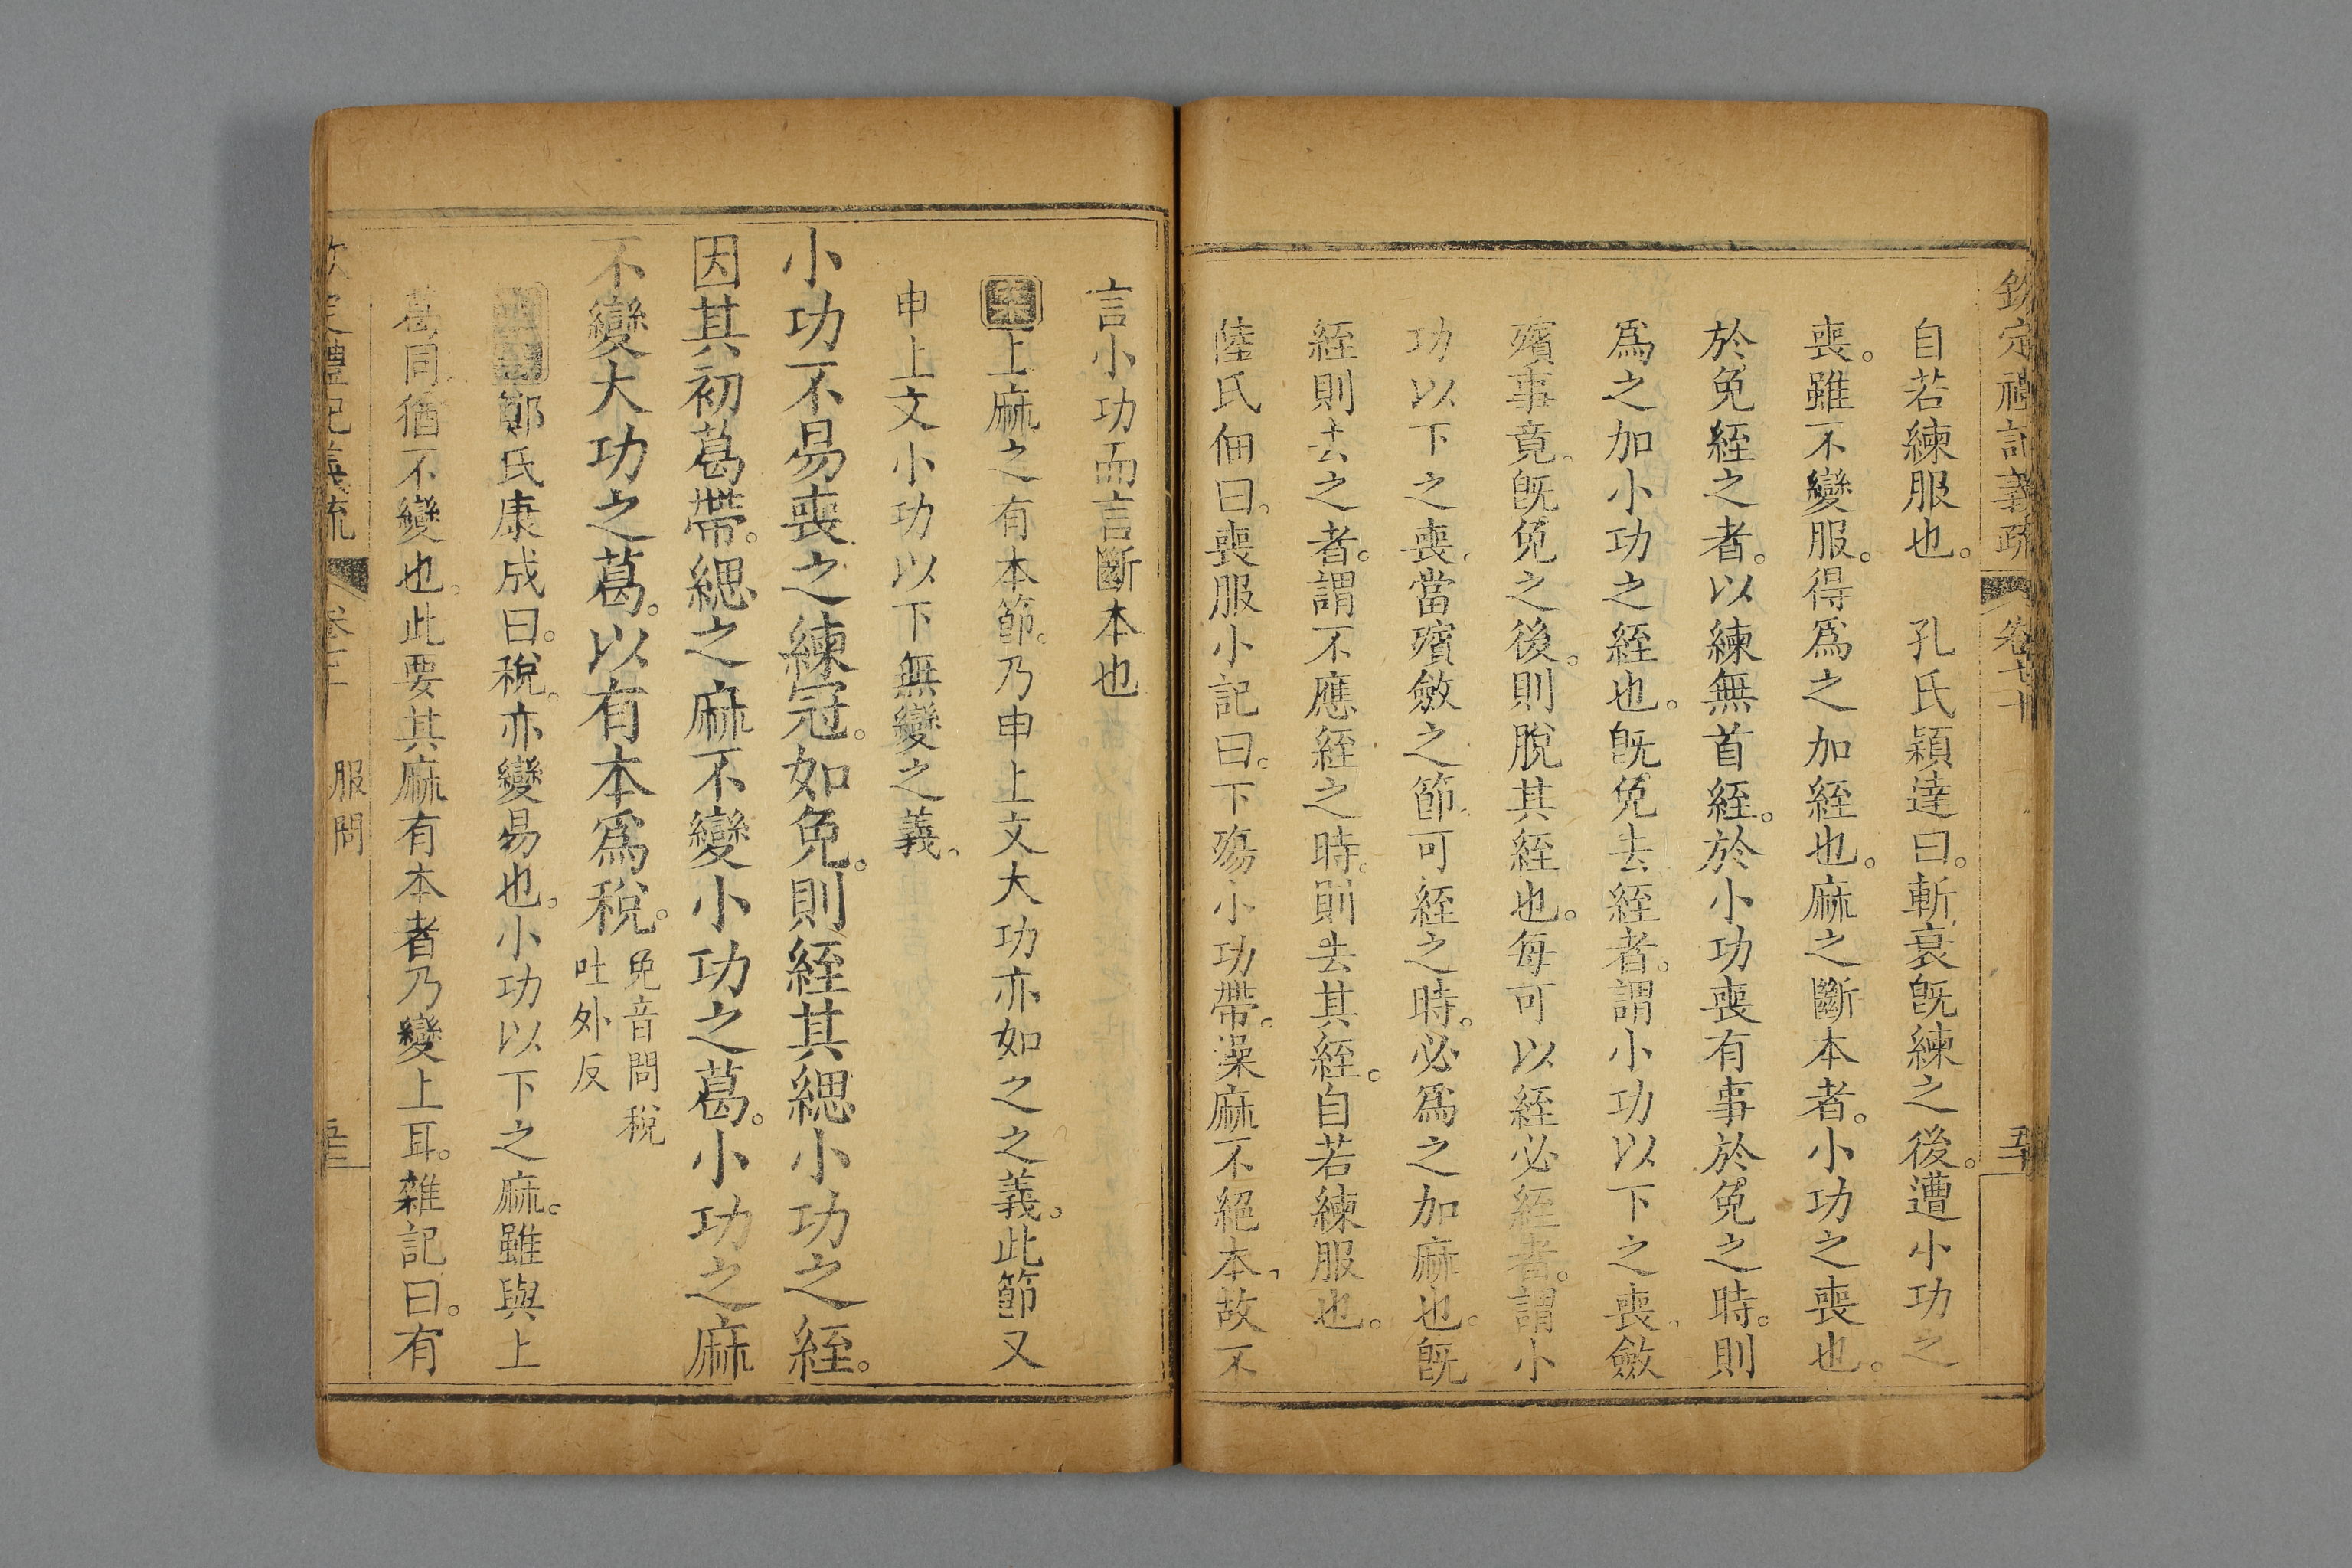 欽定禮記義疏 卷七十
自若練服也。 孔氏穎達曰。斬衰旣練之後。遭小功之
喪。雖不變服。得爲之加絰也。麻之斷本者。小功之喪也。
於免絰之者。以練無首絰。於小功喪有事於免之時。則
爲之加小功之絰也。旣免去絰者。謂小功以下之喪。斂
殯事竟。旣免之後。則脫其絰也。每可以絰必絰者。謂小
功以下之喪。當殯斂之節。可絰之時。必爲之加麻也。旣
絰則去之者。謂不應絰之時。則去其絰。自若練服也。
陸氏佃曰。喪服小記曰。下殤小功帶。澡麻不絕本。故不
言小功而言斷本也
案上麻之有本節。乃申上文大功亦如之之義。此節又
申上文小功以下無變之義。
小功不易喪之練冠。如免。則絰其緦小功之絰。
因其初葛帶。緦之麻不變小功之葛。小功之麻
不變大功之葛。以有本爲稅。
免音問稅
吐外反
鄭氏康成曰。稅。亦變易也。小功以下之麻。雖與上
葛同。猶不變也。此要其麻有本者乃變上耳。雜記曰。有
定禮記義疏
服問